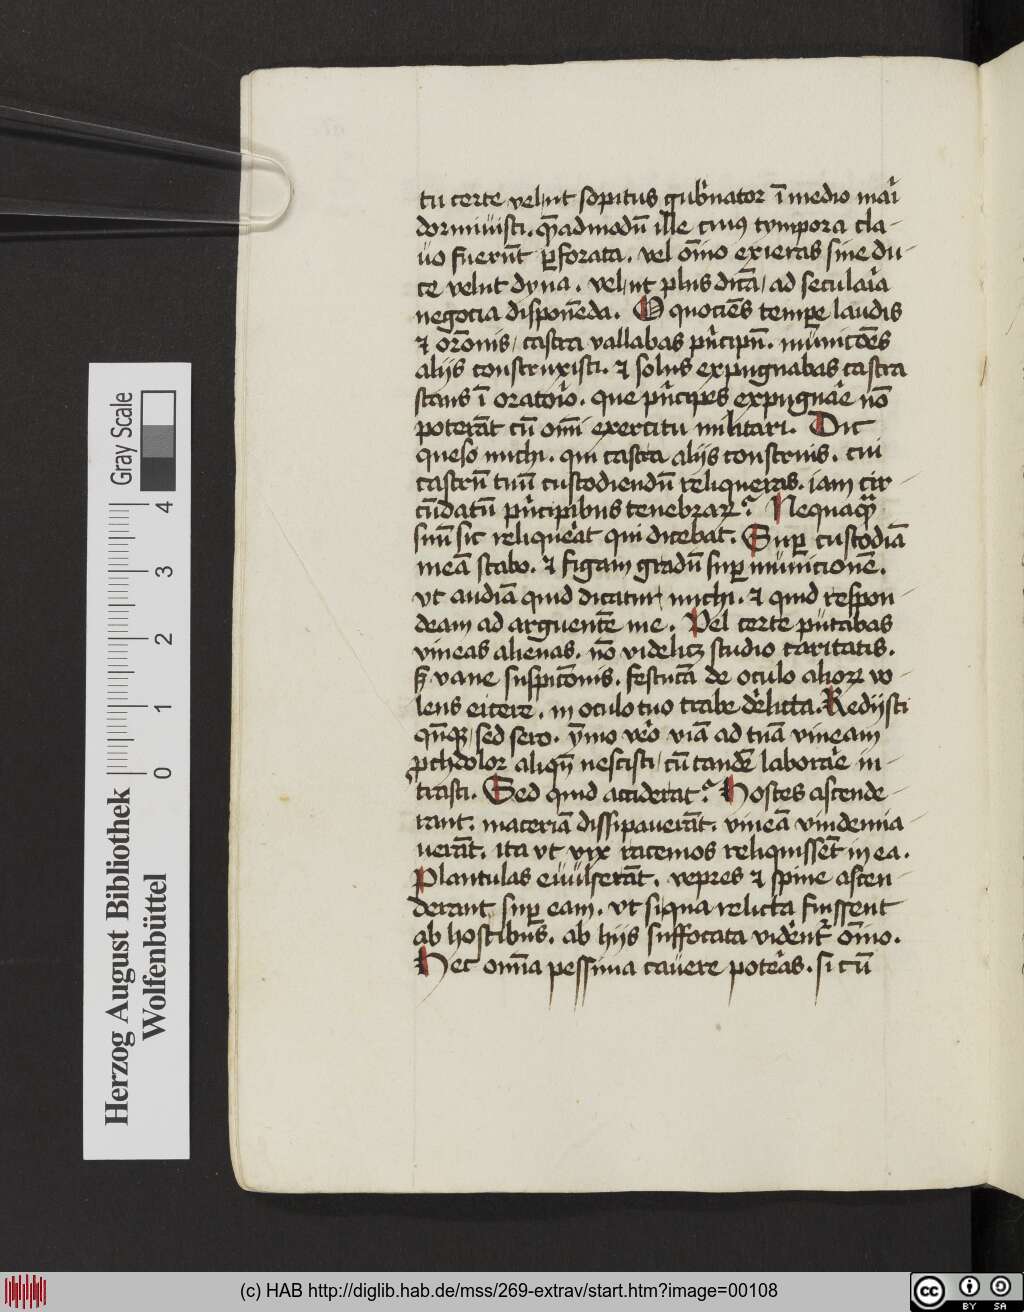 tu certe vel ut sopitus gub̾nator ī medio mar̾i
dormiuisti. q̄admodū ille cuiꝰ tympora cla-
uo fuerūt ꝑforata. vel om̄ino exieras sine du-
ce velut dyna. vel ut plus dicā, ad secular̾ia
negocia disponēda. O quociēs tempe laudis
⁊ orōnis, castra vallabas pn̾cipū. municōes
alijs construxisti. ⁊ solus expugnabas castra
stans ī orator̾io. que pn̾cipes expugnar̾e nō
poterāt cū omī exercitu militari. Dic
queso michi. qui castra alijs construis. cui
castrū tuū custodiendū reliqueras. iam cir-
cūdatū pn̾cipibus tenebraꝝ? Nequaqꝫ
suū sic reliquer̾at qui dicebat. Suꝑ custodiā
meā stabo. ⁊ figam gradū suꝑ municionē.
vt audiā quid dicatur michi. ⁊ quid respon-
deam ad arguentē me. Vel certe putabas
vineas alienas. nō videlicꝫ studio caritatis.
sꝫ vane suspicōnis. festucā de oculo alioꝝ vo-
lens eicere. in oculo tuo trabe der̾elicta. Redijsti
qn̄qꝫ, sed sero. ymo ver̾o viā ad tuā vineam
ꝓch dolor aliqn̄ nescisti, cū tandē laborar̾e in-
trasti. Sed quid acciderat? Hostes ascende-
rant. maceriā dissipauerāt. vineā vindemia-
uerāt. ita vt vix racemos reliquissēt in ea.
Plantulas euulserāt. vepres ⁊ spine ascen-
derant suꝑ eam. vt si qua relicta fuissent
ab hostibus. ab hijs suffocata vider̾ent̾ om̄ino.
Hec omīa pessima cauere poter̾as. si cū
Herzog August Bibliothek
Wolfenbüttel
Gray Scale
0 1 2 3 4
(c) HAB http://diglib.hab.de/mss/269-extrav/start.htm?image=00108
cc BY SA